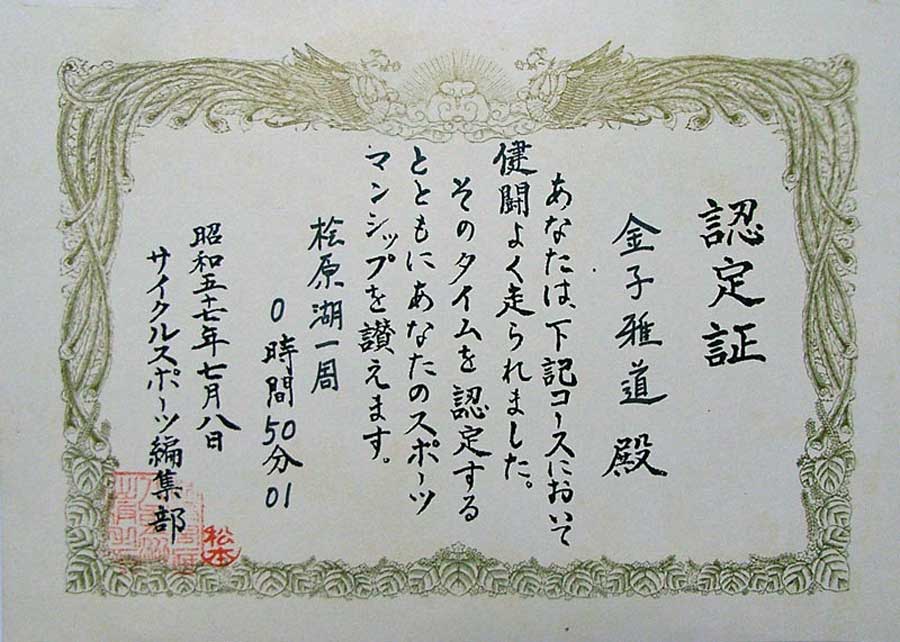 認定証
金子雅道 殿
あなたは、下記コースにおいて
健闘よく走られました。
そのタイムを認定する
とともにあなたのスポーツ
マンシップを讃えます。
桧原湖一周
0時間50分01
昭和五十七年七月八日
サイクルスポーツ編集部
松本